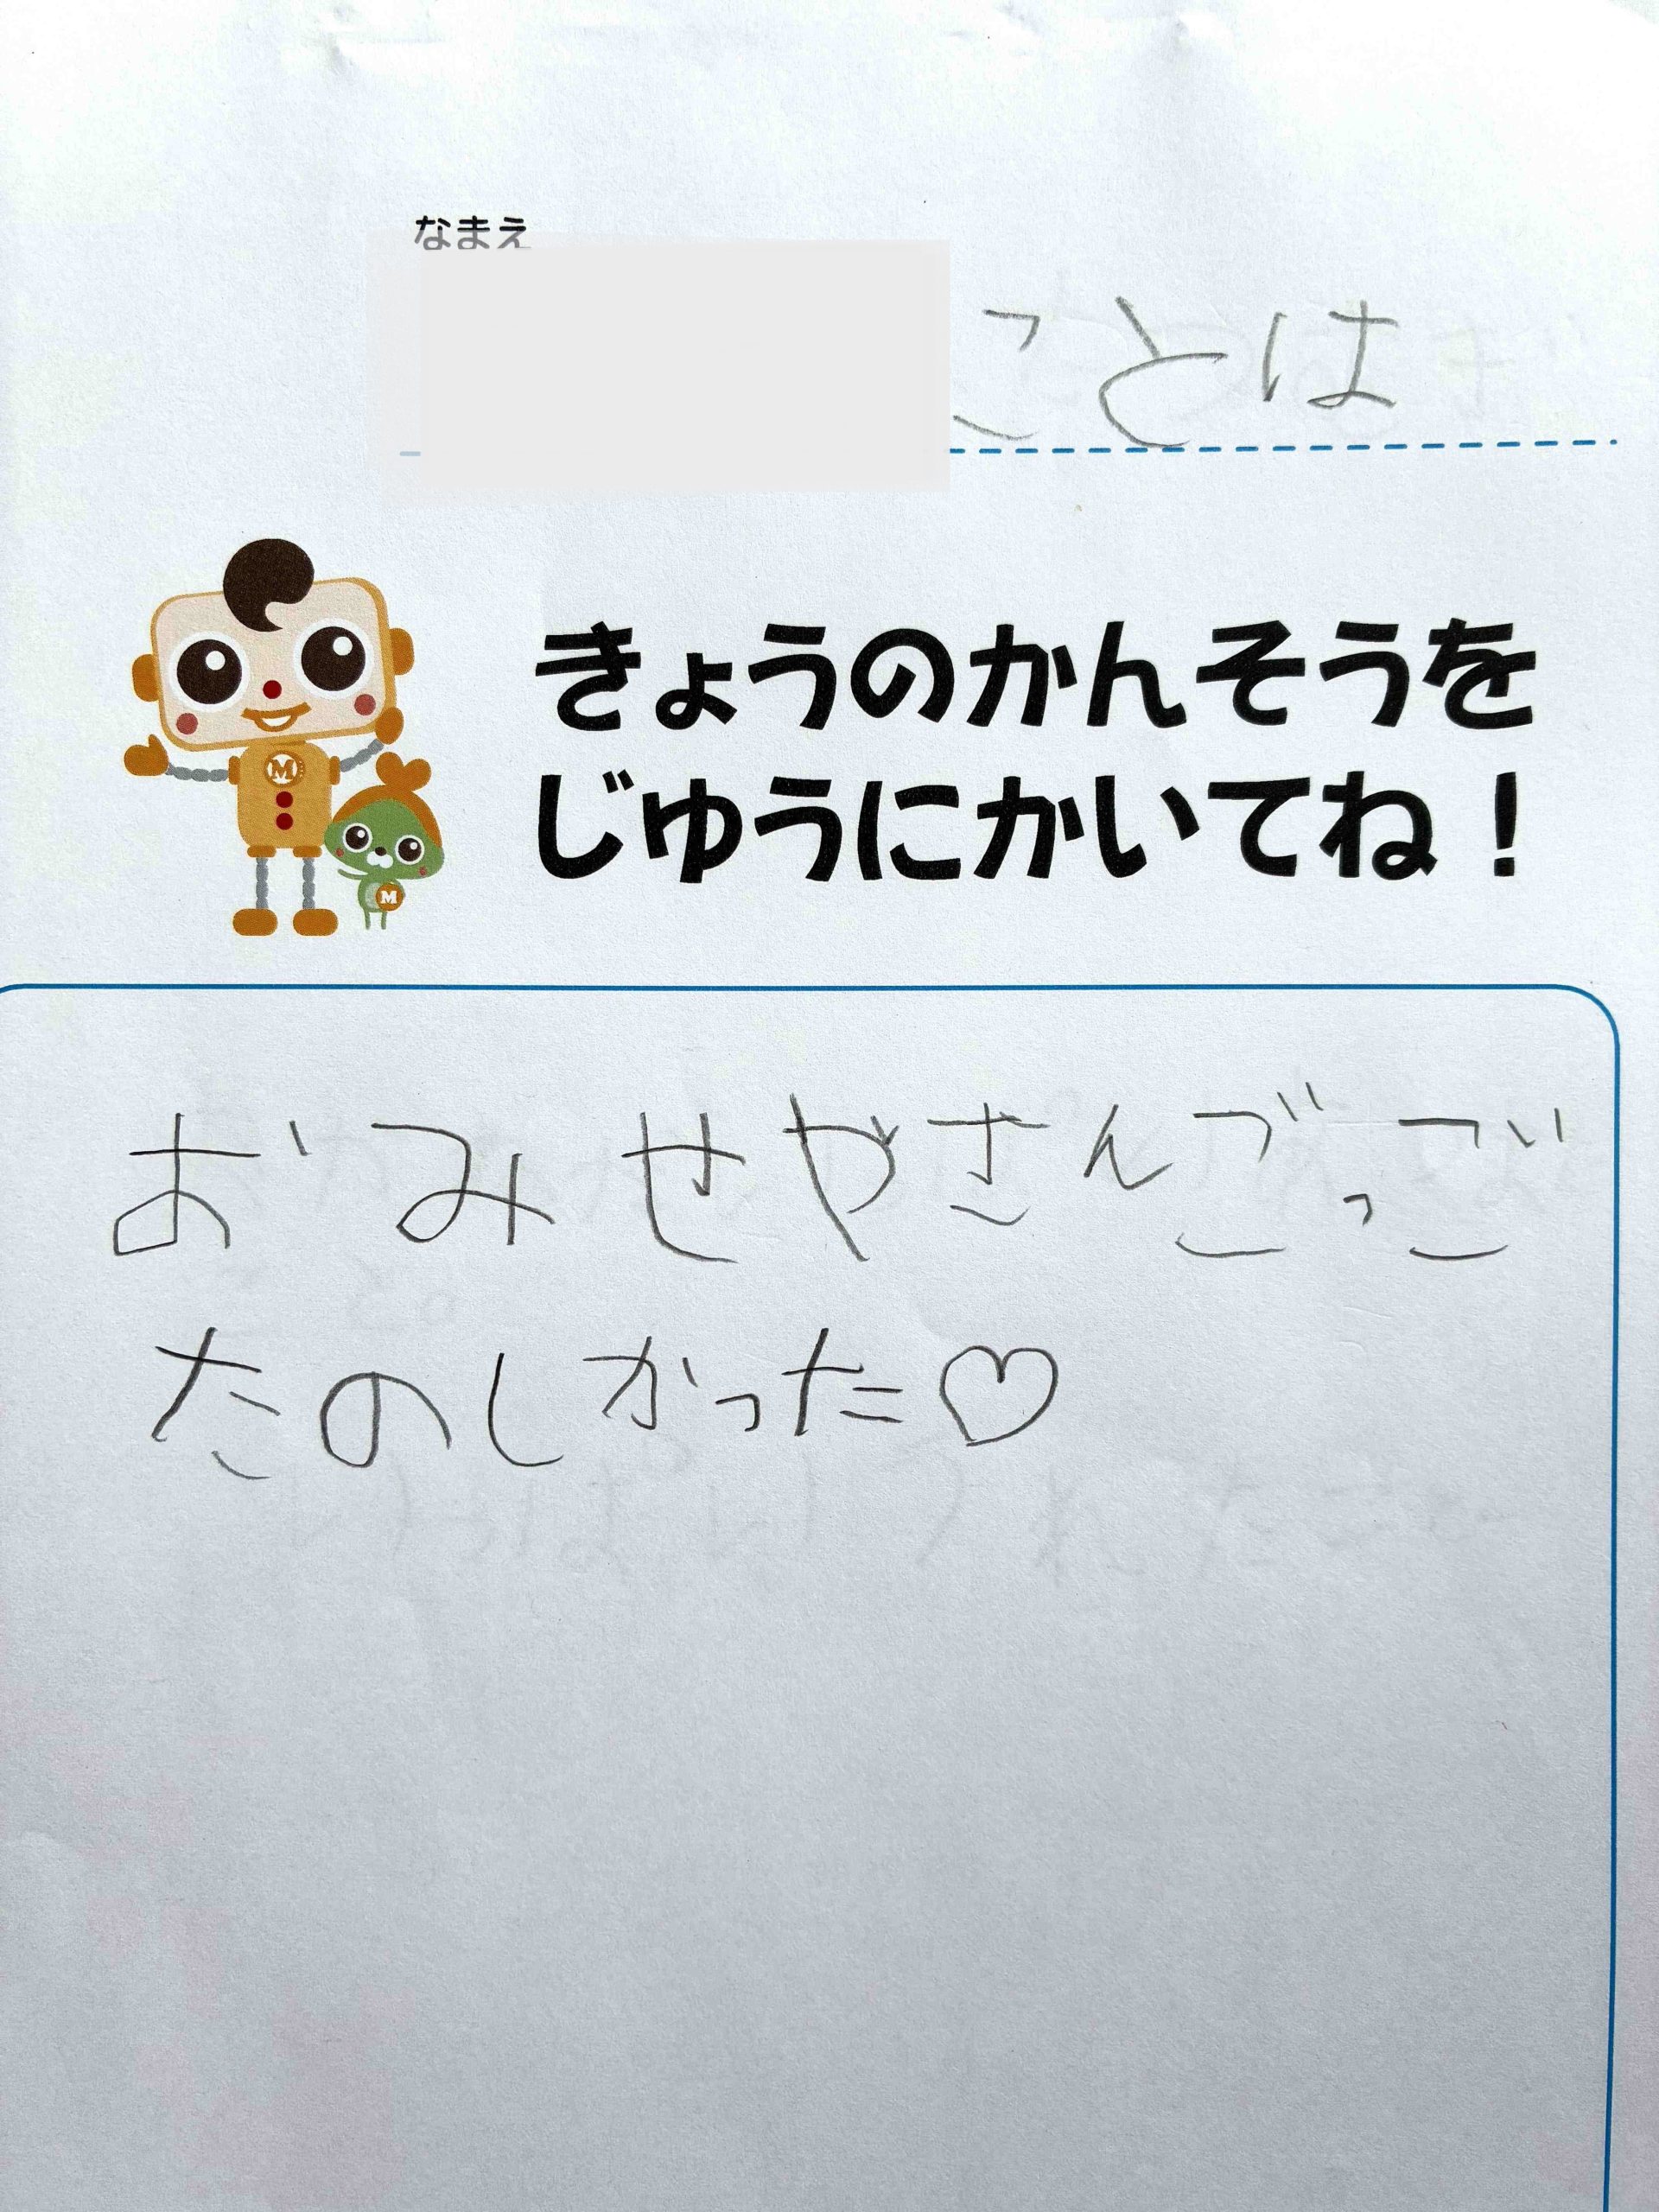 なまえ
ことは
きょうのかんそうを
じゆうにかいてね！
M
M
おみせやさんごっご
たのしかった♡